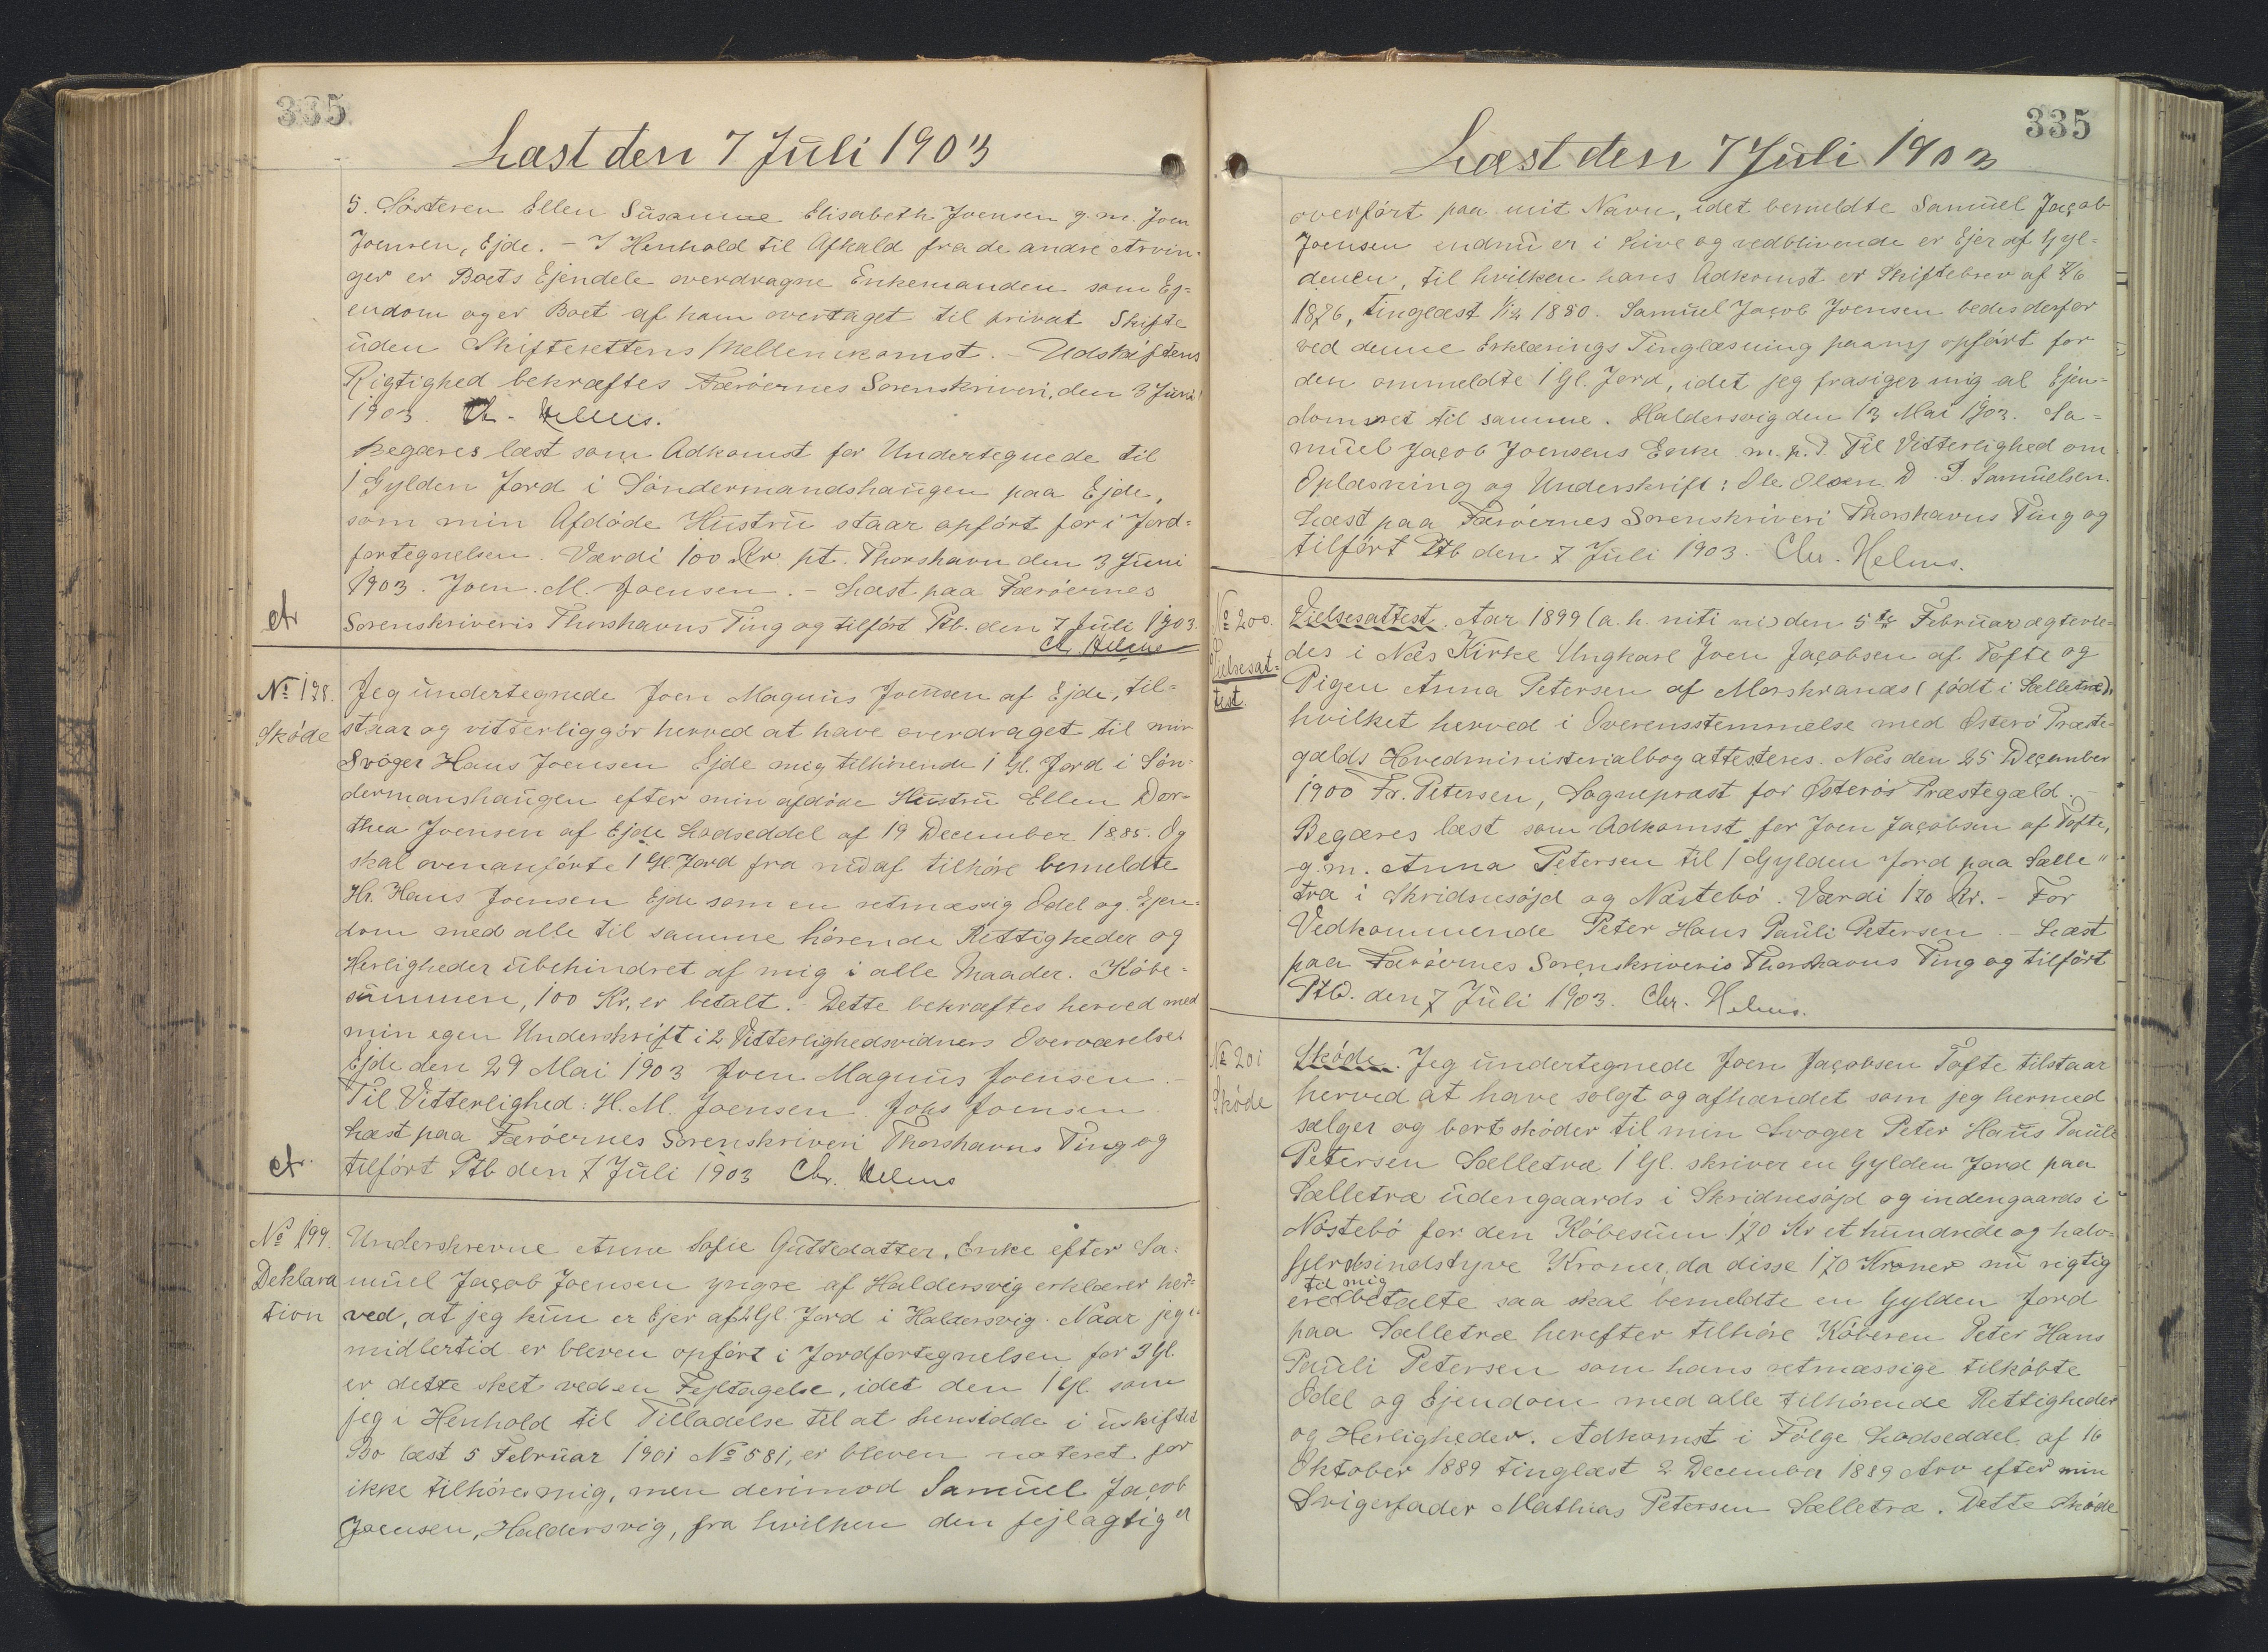 335
Læst den 7 Juli 1903
5. Søsteren Ellen Susanne Elisabeth Joensen g. m. Joen
Joensen, Ejde. – I Henhold til Afkald fra de andre Arvin-
ger er Boets Ejendele overdragne Enkemanden som Ej=
endom og er Boet af ham overtaget til privat Skifte
uden Skifterettens Mellemkomst. – Udskriftens
Rigtighed bekræftes Færöernes Sorenskriveri, den 3 Juni
1903. Ch. Helms.
Begæres læst som Adkomst for Undertegnede til
1 Gylden Jord i Söndermandshaugen paa Ejde,
som min Afdöde Hustru staar opfört for i Jord-
fortegnelsen. Værdi 100 Kr. pt. Thorshavn den 3 Juni
1903. Joen. M. Joensen. – Læst paa Færöernes
Sorenskriveris Thorshavns Ting og tilfört Ptb. den 7 Juli 1903.
Ch. Helms
№ 198.
Sköde
Jeg undertegnede Joen Magnus Joensen af Ejde, til=
staar og vitterliggör herved at have overdraget til min
Svöger Hans Joensen Ejde mig tilhörende 1 Gl. Jord i Sön-
dermanshaugen efter min afdöde Hustru Ellen Dor-
thea Joensen af Ejde Lodseddel af 19 December 1885. Og
skal ovenanförte 1 Gl. Jord fra nu af tilhöre bemeldte
Hr. Hans Joensen Ejde som en retmæssig Odel og Ejen-
dom med alle til samme hörende Rettigheder og
Herligheder ubehindret af mig i alle Maader. Köbe-
summen, 100 Kr, er betalt. – Dette bekræftes herved med
min egen Underskrift i 2 Vitterlighedsvidners Overværelse.
Ejde den 29 Mai 1903 Joen Magnus Joensen. –
Til Vitterlighed: H. M. Joensen. Johs Joensen.
Læst paa Færöernes Sorenskriveri Thorshavns Ting og
tilfört Ptb den 7 Juli 1903 Chr. Helms
№ 199.
Deklara
tion
Underskrevne Anne Sofie Guttedatter, Enke efter Sa-
muel Jaçob Joensen yngre af Haldersvig erklærer her-
ved, at jeg kun er Ejer af 2 Gl. Jord i Haldersvig. Naar jeg
midlertid er bleven opfört i Jordfortegnelsen for 3 Gl.
er dette sket ved en Fejltagelse, idet den 1 Gl. som
jeg i Henhold til Tilladelse til at hensidde i uskiftet
Bo læst 5 Februar 1901 № 581, er bleven noteret for
ikke tilhörer mig, men derimod Samuel Jaçob
Joensen, Haldersvig, fra hvilken den fejlagtig er
335
Læst den 7 Juli 1903
overfört paa mit Navn, idet bemeldte Samuel Jaçob
Joensen endnu er i Live og vedblivende er Ejer af Gyl=
denen, til hvilken hans Adkomst er Skiftebrev af 7/6
1876, tinglæst 1/12 1880. Samuel Jaçob Joensen bedes derfor
ved denne Erklærings Tinglæsning paany opfört for
den ommeldte 1 Gl. Jord, idet jeg frasiger mig al Ejen=
domsret til samme. Haldersvig den 13 Mai 1903. Sa=
muel Jaçob Joensens Enke m. p. P. Til Vitterlighed om
Oplæsning og Underskrift: Ole Olsen. D. P. Samuelsen.
Læst paa Færöernes Sorenskriveri Thorshavns Ting og
tilfört Ptb den 7 Juli 1903. Chr. Helms.
№ 200.
Vielsesat=
test.
Vielsesattest. Aar 1899 (a. h. niti ni) den 5te Februar ægtevie-
des i Næs Kirke Ungkarl Joen Jaçobsen af Tofte og
Pigen Anna Petersen af Morskranæs (födt i Sælletræ),
hvilket herved i Overensstemmelse med Österö Præste-
gælds Hovedministerialbog attesteres. Næs den 25 December
1900 Fr. Petersen, Sognepræst for Österös Præstegæld. –
Begæres læst som Adkomst for Joen Jaçobsen af Tofte,
g. m. Anna Petersen til 1 Gylden Jord paa Sælle"
træ i Skridnesöjd og Nöstebö. Værdi 170 Kr. – For
Vedkommende Peter Hans Pauli Petersen – Læst
paa Færöernes Sorenskriveris Thorshavns Ting og tilfört
Ptb. den 7 Juli 1903. Chr. Helms.
№ 201
Sköde
Sköde. Jeg undertegnede Joen Jaçobsen Tofte tilstaar
herved at have solgt og afhændet som jeg hermed
sælger og bortsköder til min Svoger Peter Hans Pauli
Petersen Sælletræ 1 Gl. skriver en Gylden Jord paa
Sælletræ udengaards i Skridnesöjd og indengaards i
Nöstebö for den Köbesum 170 Kr et hundrede og halv-
fjerdsindstyve Kroner, da disse 170 Kroner nu rigtig
til mig
ere betalte saa skal bemeldte en Gylden Jord
paa Sælletræ herefter tilhöre Köberen Peter Hans
Pauli Petersen som hans retmæssige tilköbte
Odel og Ejendom med alle tilhörende Rettigheder
og Herligheder. Adkomst i Fölge Lodseddel af 16
Oktober 1889 tinglæst 2 December 1889 Arv efter min
Svigerfader Mathias Petersen Sælletræ. Dette Sköde